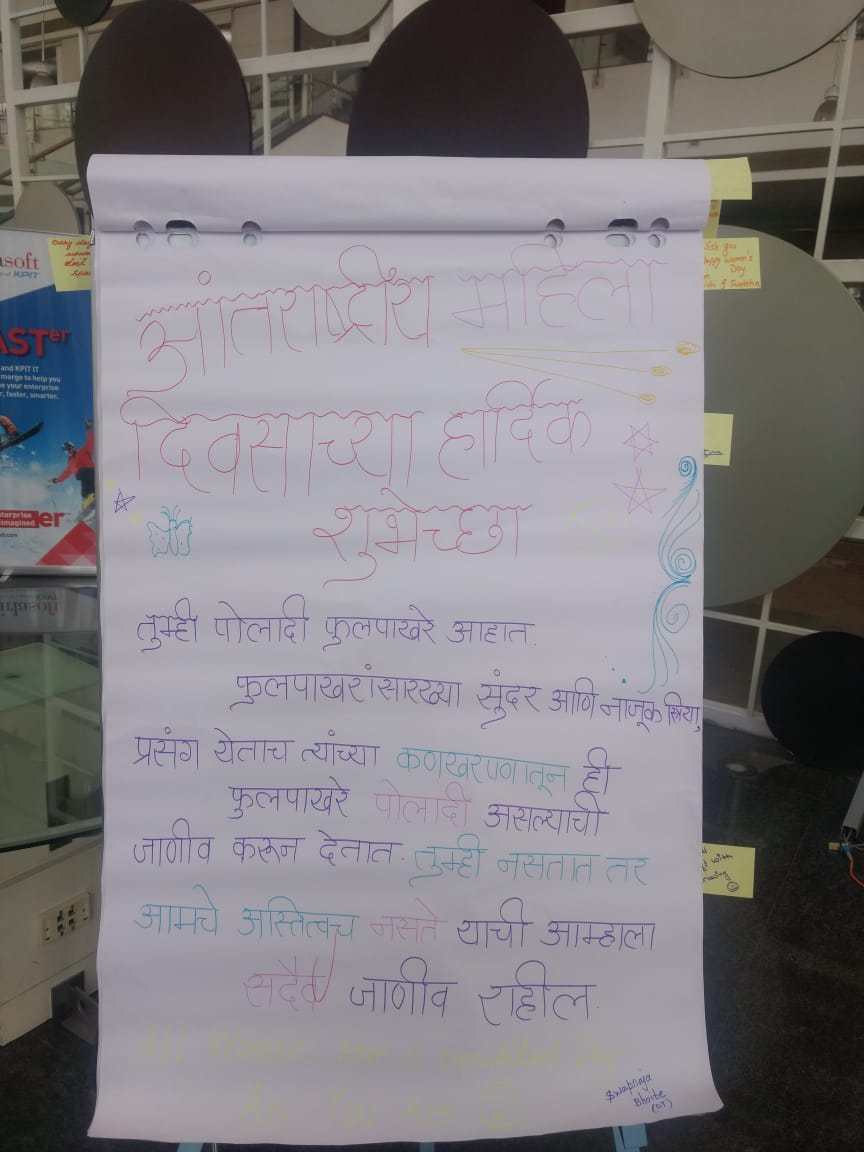 आंतरराष्ट्रीय महिला
दिवसाच्या हार्दिक
शुभेच्छा
तुम्ही पोलादी फुलपाखरे आहात.
फुलपाखरांसारख्या सुंदर आणि नाजूक स्त्रिया
प्रसंग येताच त्यांच्या कणखरपणातून ही
फुलपाखरे पोलादी असल्याची
जाणीव करून देतात. तुम्ही नसतात तर
आमचे अस्तित्वच नसते याची आम्हाला
सदैव जाणीव राहील.
All Women have a beautiful Day
As You Are
Swapnaja
Bhoite
asoft
KPIT
ASTer
and KPIT IT
merge to help you
e your enterprise
r, faster, smarter.
nterprise
eimagined
er
every day
Wish you
Happy Women's
Day